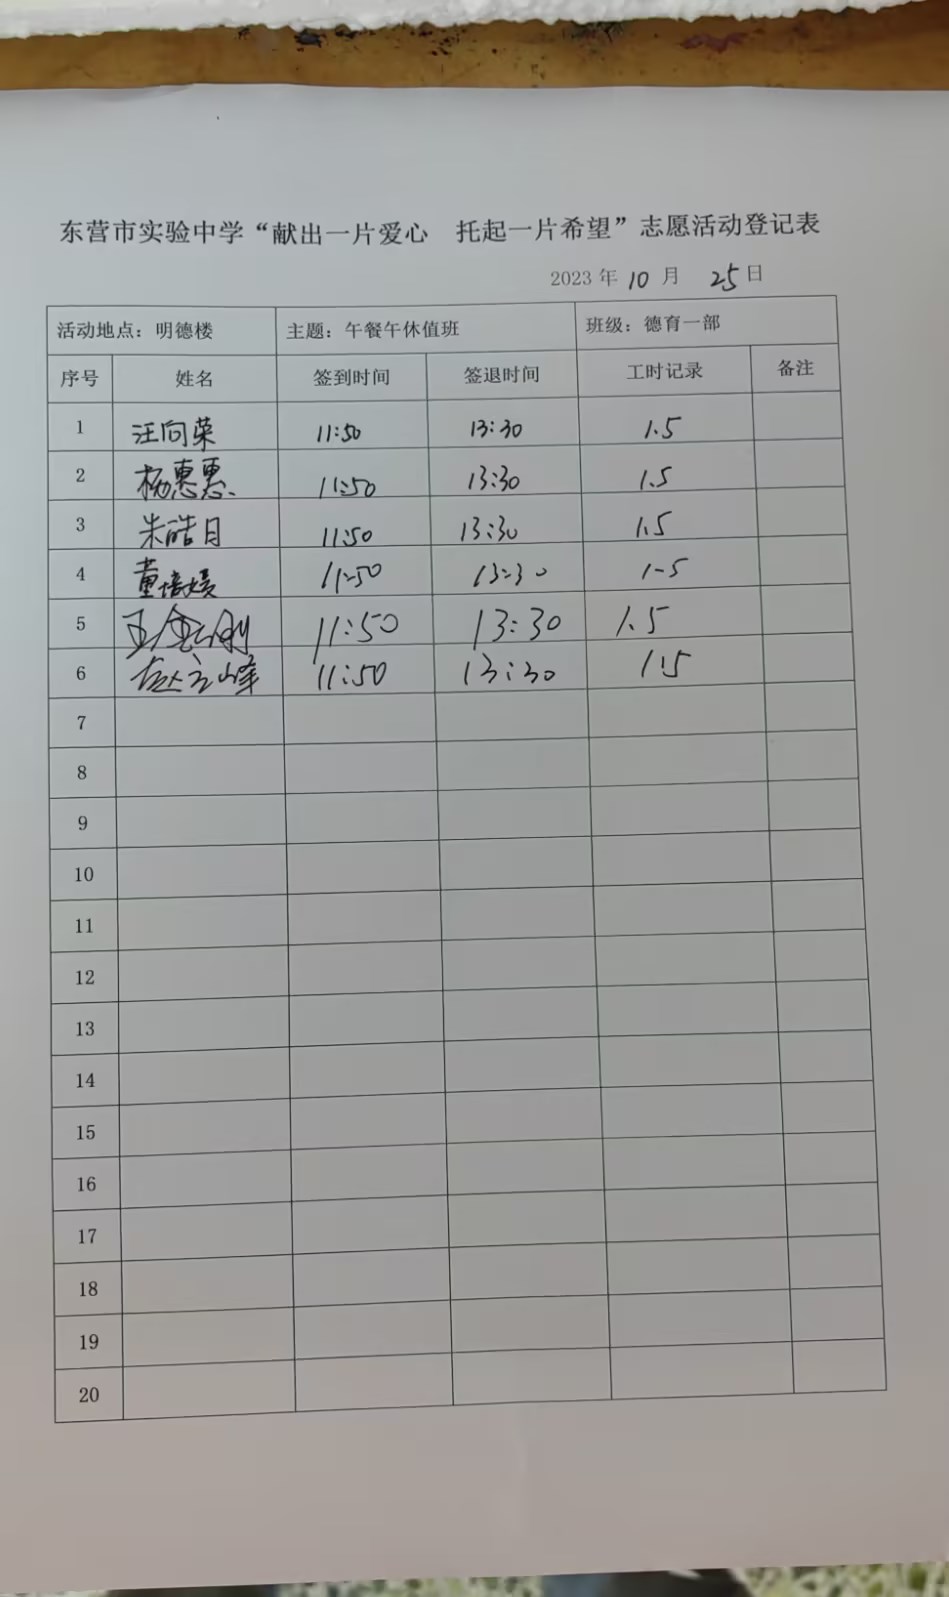 东营市实验中学“献出一片爱心 托起一片希望”志愿活动登记表
2023 年 10 月 25 日
活动地点：明德楼 主题：午餐午休值班 班级：德育一部
序号 姓名 签到时间 签退时间 工时记录 备注
1 汪向荣 11:50 13:30 1.5
2 杨惠惠 11:50 13:30 1.5
3 朱皓月 11:50 13:30 1.5
4 董培媛 11:50 13:30 1.5
5 王金刚 11:50 13:30 1.5
6 赵立峰 11:50 13:30 1.5
7
8
9
10
11
12
13
14
15
16
17
18
19
20